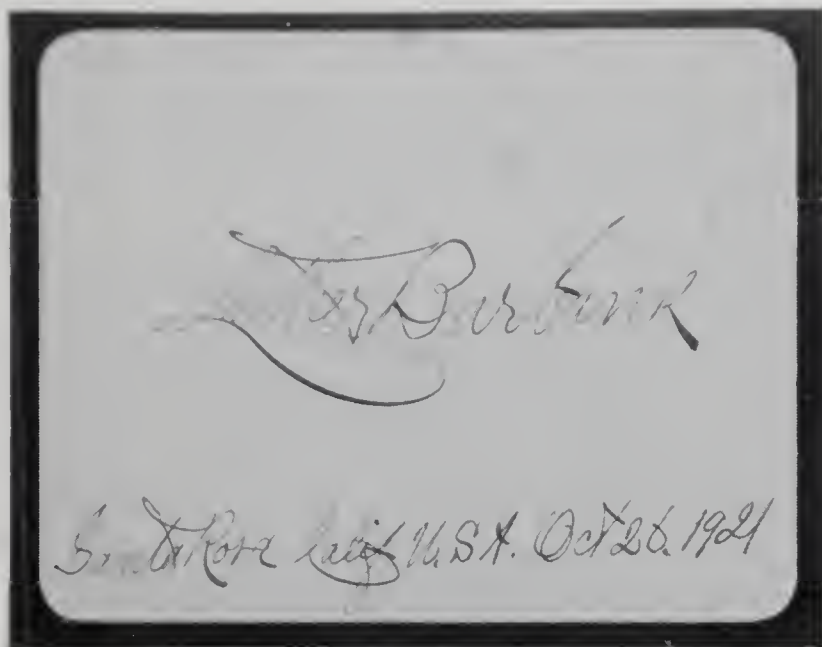 Luther Burbank
Santa Rosa Calif. U.S.A. Oct 26. 1921